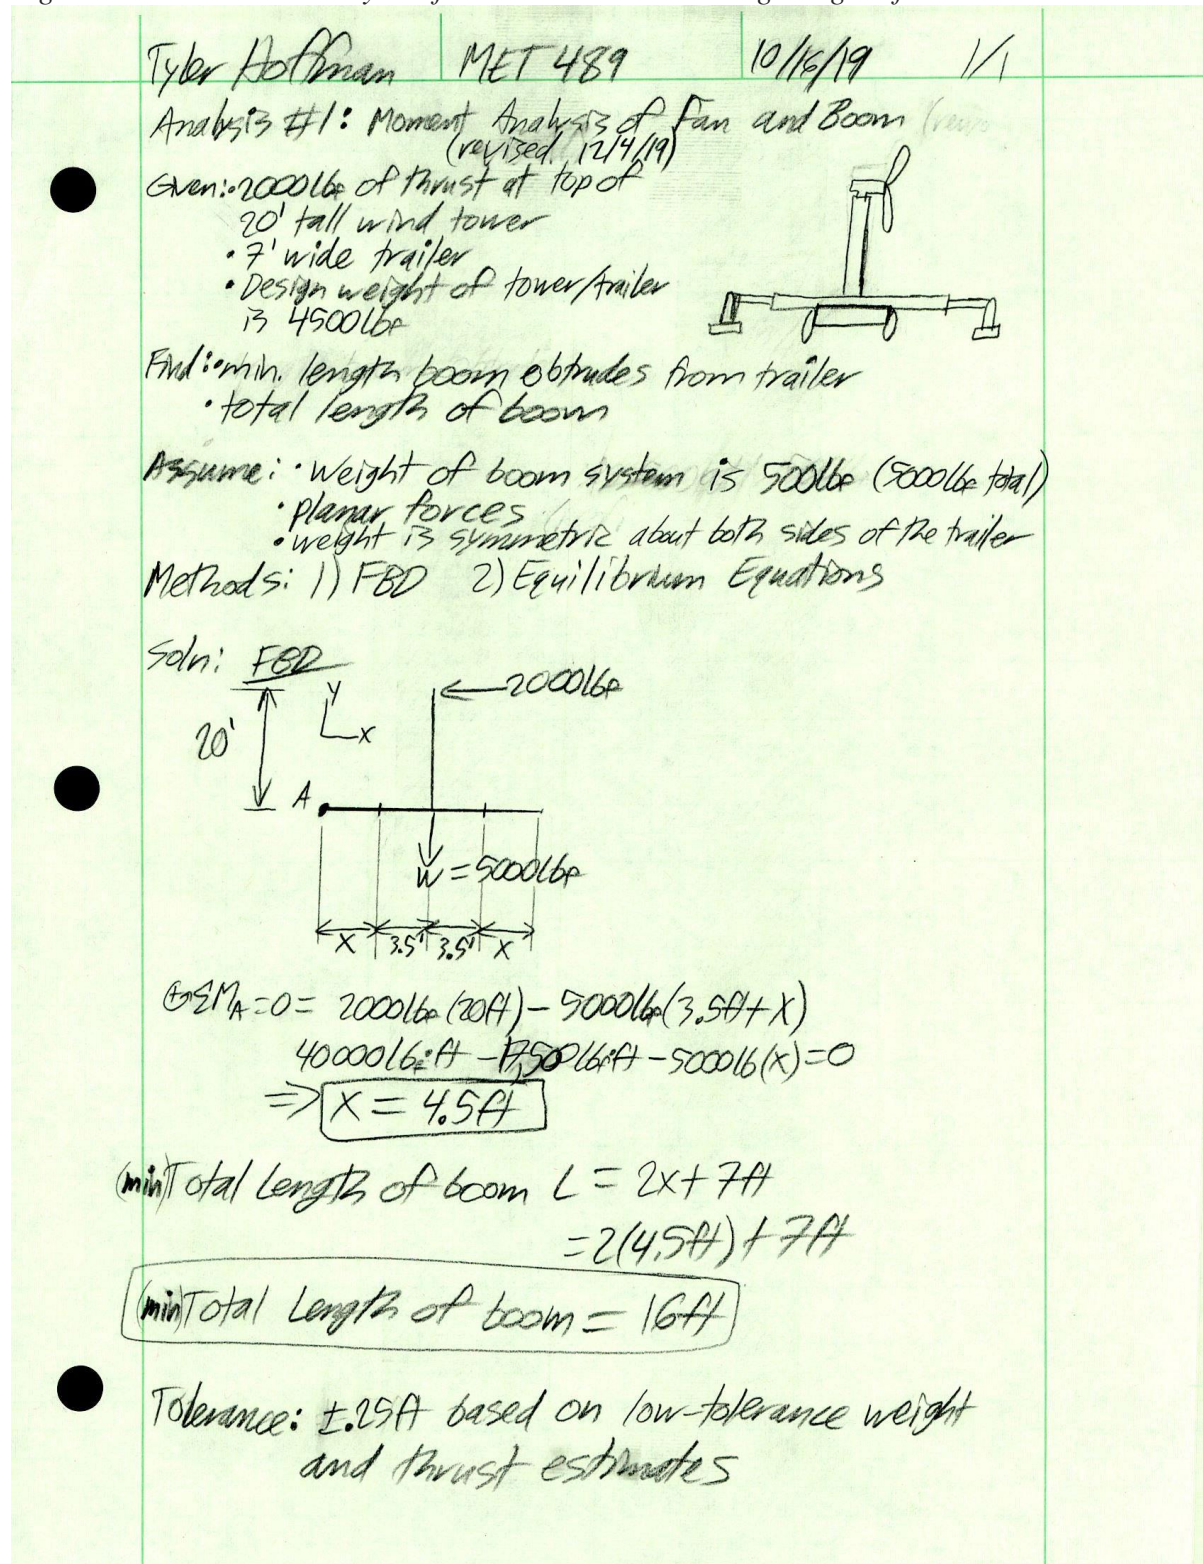 Tyler Hoffman MET 489 10/16/19 1/1
Analysis #1: Moment Analysis of Fan and Boom
(revised 12/4/19)
Given: • 2000lbf of thrust at top of
20' tall wind tower
• 7' wide trailer
• Design weight of tower/trailer
is 4500lbf
Find: • min. length boom obtrudes from trailer
• total length of boom
Assume: • Weight of boom system is 500lbf (5000lbf total)
• planar forces
• weight is symmetric about both sides of the trailer
Methods: 1) FBD 2) Equilibrium Equations
Soln: FBD
y
2000lbf
20'
x
A
W = 5000lbf
x 3.5' 3.5' x
+ΣM_A = 0 = 2000lbf (20ft) - 5000lbf (3.5ft + x)
40000lbf·ft - 17,500lbf·ft - 5000lb(x) = 0
⇒ x = 4.5ft
(min) Total Length of boom L = 2x + 7ft
= 2(4.5ft) + 7ft
(min) Total Length of boom = 16ft
Tolerance: ±.25ft based on low-tolerance weight
and thrust estimates